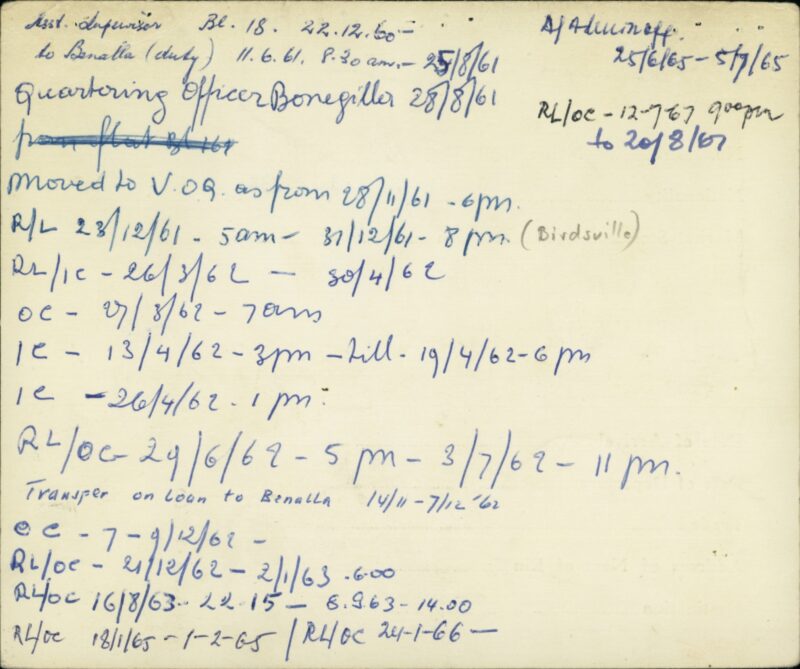 Asst. Supervisor Bl. 18. 22.12.60 —
to Benalla (duty) 11.6.61. 8.30am. — 25/8/61
Quartering Officer Bonegilla 28/8/61
from flat Bl
moved to V.O.Q. as from 28/11/61 - 6pm.
R/L 23/12/61 - 5am — 31/12/61 - 8 pm. (Birdsville)
RL/IC - 26/3/62 — 30/4/62
OC - 27/3/62 - 7am
IC - 13/4/62 - 3pm - till - 19/4/62 - 6 pm
IC - 26/4/62 - 1 pm.
RL/OC 29/6/62 - 5 pm - 3/7/62 - 11 pm.
Transfer on Loan to Benalla 14/11 - 7/12 '62
OC - 7 - 9/12/62 -
RL/OC - 21/12/62 - 2/1/63 . 6.00
RL/OC 16/8/63 - 22.15 — 6.9.63 - 14.00
RL/OC 18/1/65 - 1-2-65 / RL/OC 24-1-66 —
25/6/65 - 5/7/65
RL/OC - 12-7-67 900pm
to 20/8/67